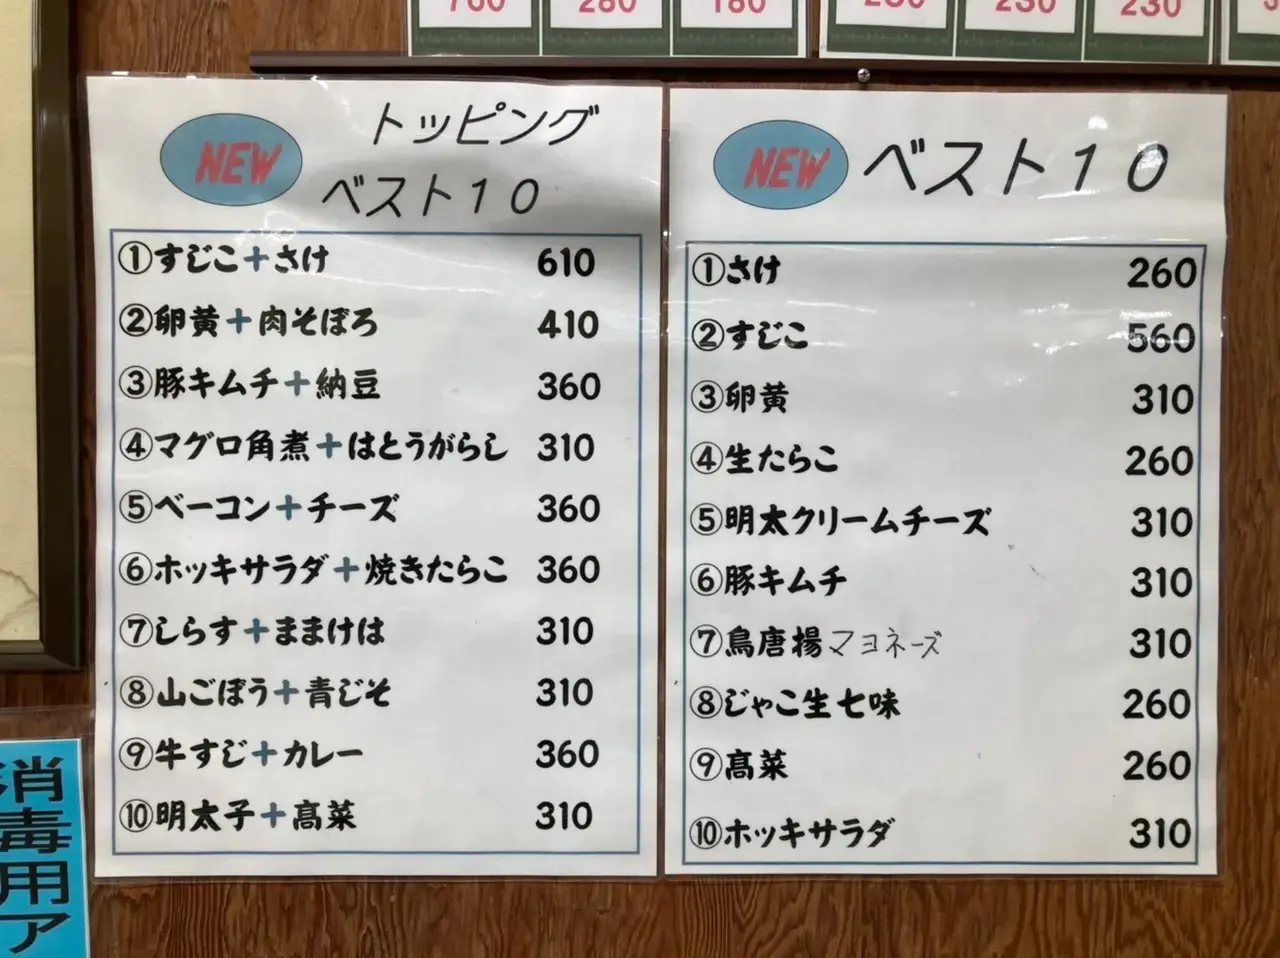 760 280 180 230 230 230
NEW トッピング
ベスト10
①すじこ+さけ 610
②卵黄+肉そぼろ 410
③豚キムチ+納豆 360
④マグロ角煮+はとうがらし 310
⑤ベーコン+チーズ 360
⑥ホッキサラダ+焼きたらこ 360
⑦しらす+ままけは 310
⑧山ごぼう+青じそ 310
⑨牛すじ+カレー 360
⑩明太子+髙菜 310
NEW ベスト10
①さけ 260
②すじこ 560
③卵黄 310
④生たらこ 260
⑤明太クリームチーズ 310
⑥豚キムチ 310
⑦鳥唐揚マヨネーズ 310
⑧じゃこ生七味 260
⑨髙菜 260
⑩ホッキサラダ 310
消毒用ア